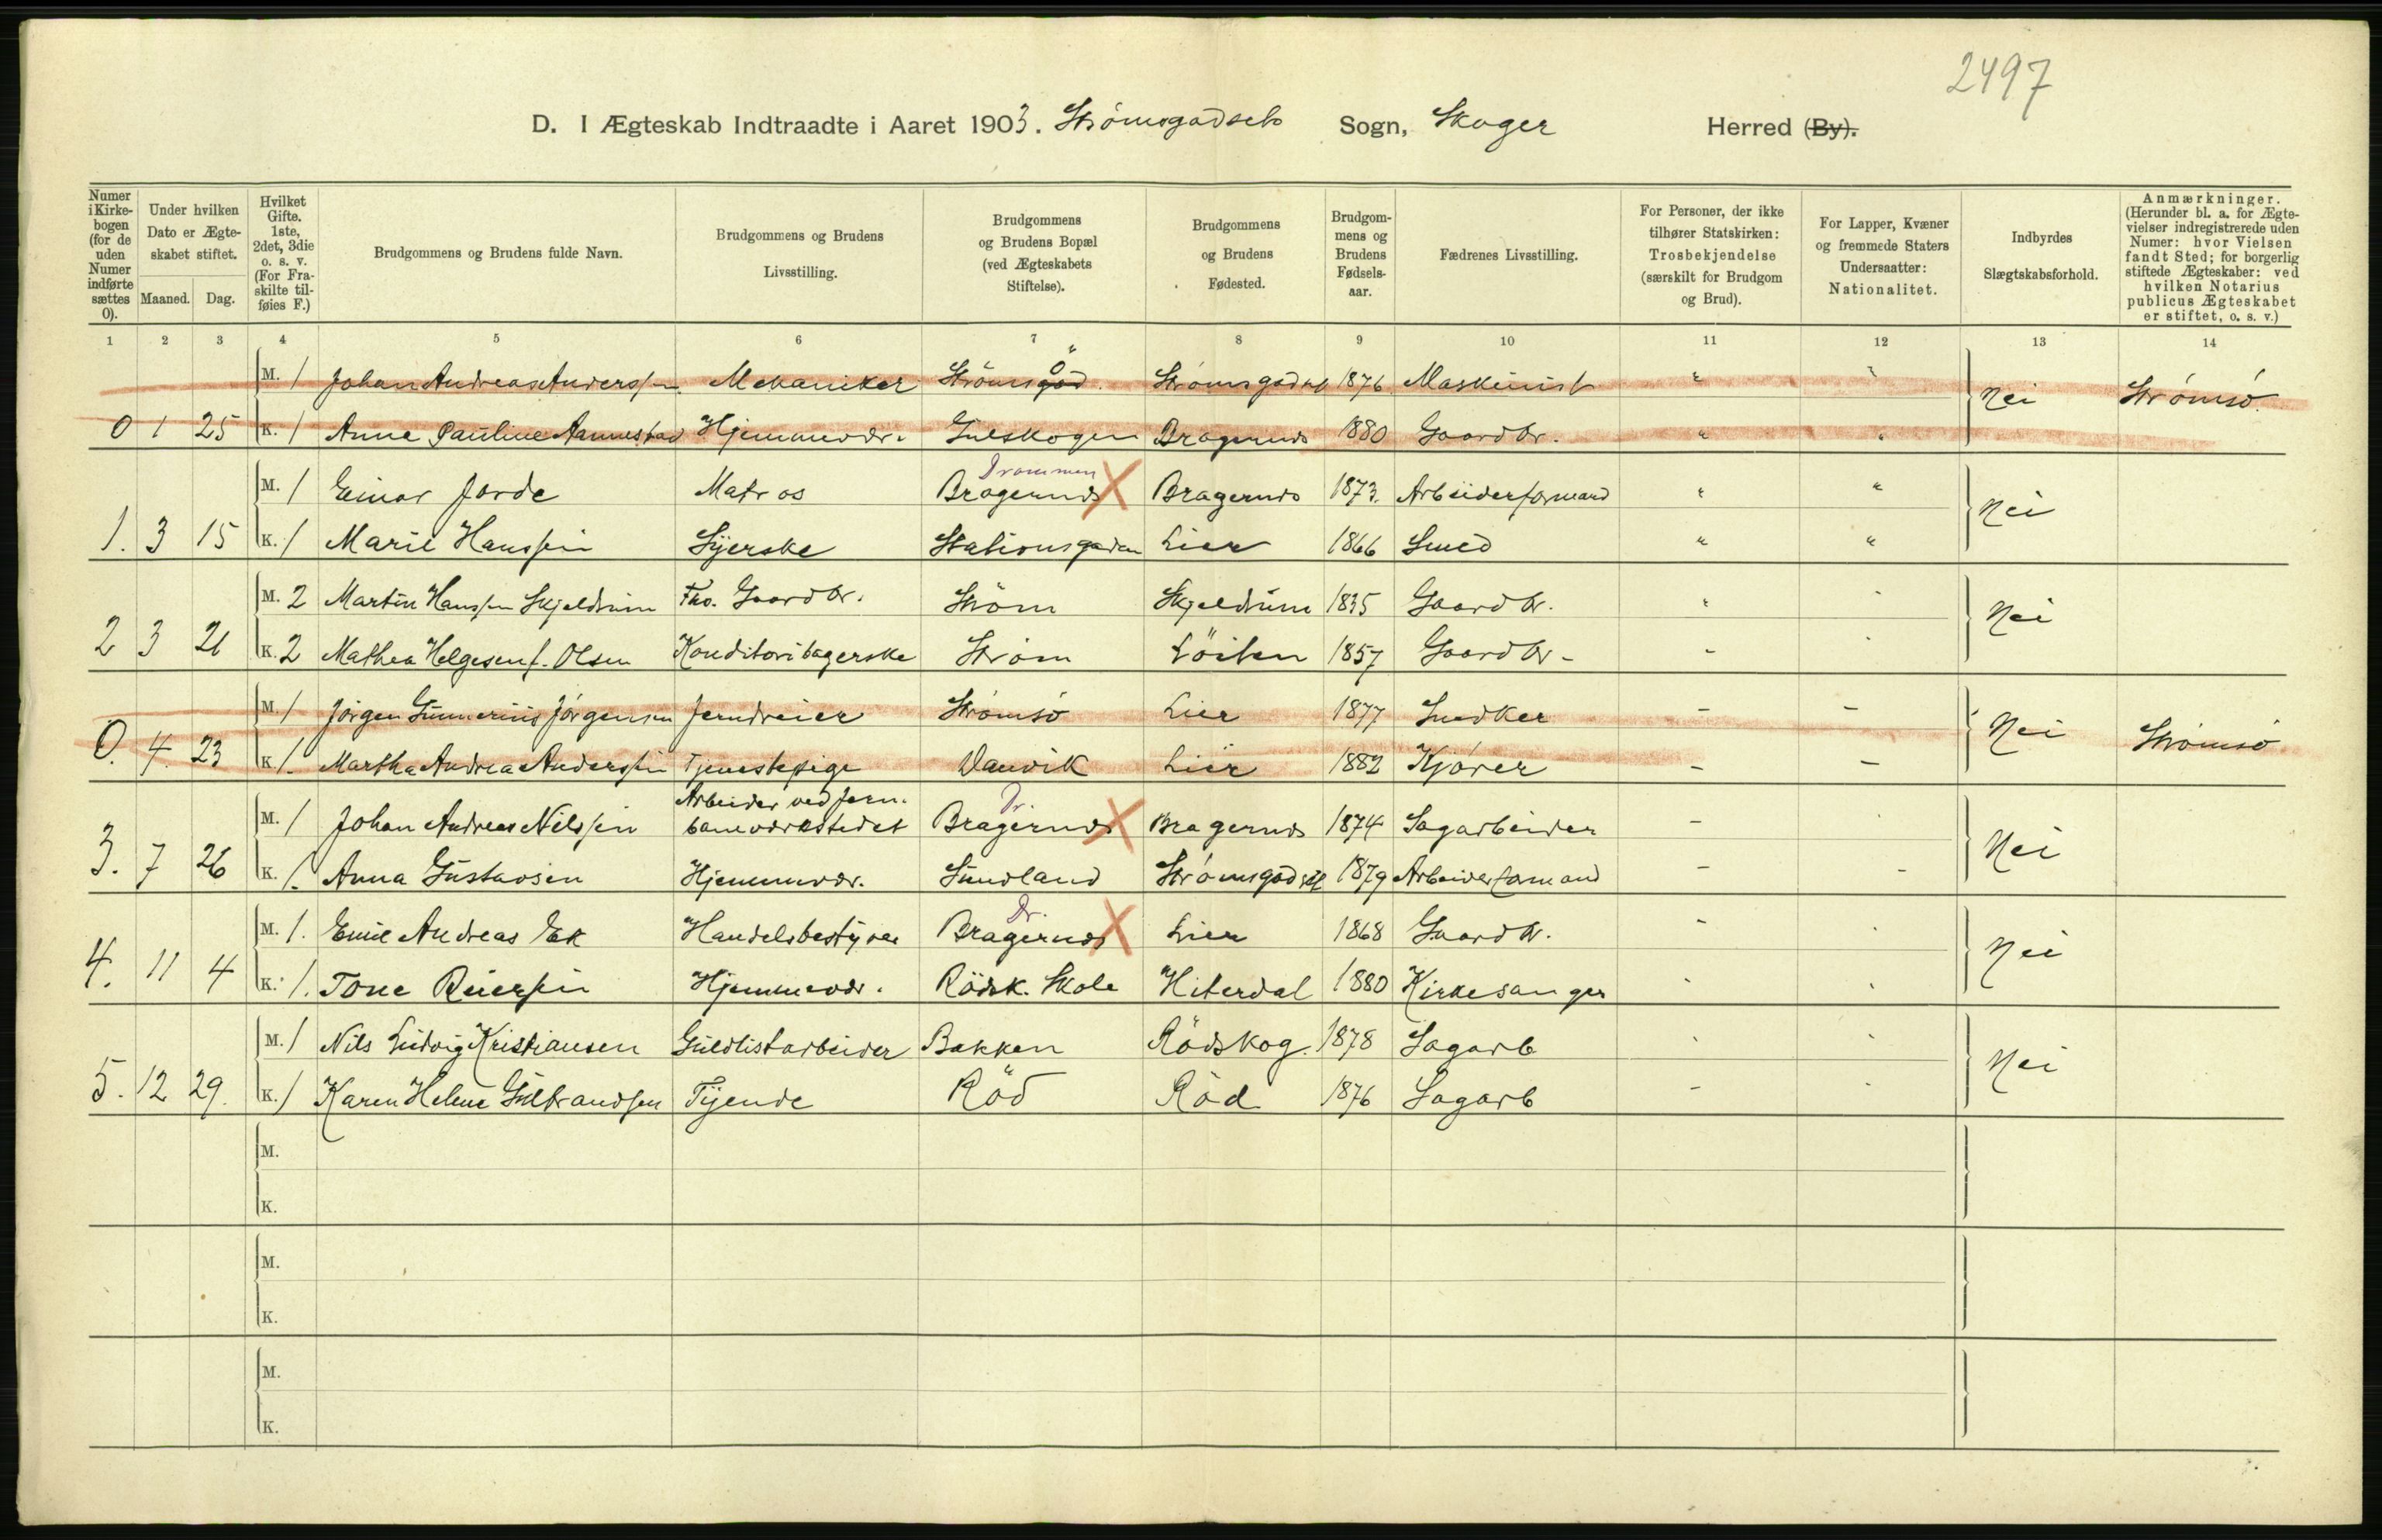 2497
D. I Ægteskab Indtraadte i Aaret 1903. Strömsgodsets Sogn, Skoger Herred (By).
Numer i Kirke-bogen (for de uden Numer indførte sættes 0). Under hvilken Dato er Ægte-skabet stiftet. Maaned. Dag. Hvilket Gifte. 1ste, 2det, 3die o. s. v. (For Fra-skilte til-føies F.) Brudgommens og Brudens fulde Navn. Brudgommens og Brudens Livsstilling. Brudgommens og Brudens Bopæl (ved Ægteskabets Stiftelse). Brudgommens og Brudens Fødested. Brudgom-mens og Brudens Fødsels-aar. Fædrenes Livsstilling. For Personer, der ikke tilhører Statskirken: Trosbekjendelse (særskilt for Brudgom og Brud). For Lapper, Kvæner og fremmede Staters Undersaatter: Nationalitet. Indbyrdes Slægtskabsforhold. Anmærkninger. (Herunder bl. a. for Ægte-vielser indregistrerede uden Numer: hvor Vielsen fandt Sted; for borgerlig stiftede Ægteskaber: ved hvilken Notarius publicus Ægteskabet er stiftet, o. s. v.)
1 2 3 4 5 6 7 8 9 10 11 12 13 14
M. 1 Johan Andreas Anderssen Mekaniker Strömsgod. Strömsgodset 1876 Maskinist " " Nei Strömsö.
0 1 25 K. 1 Anne Pauline Aannestad Hjemmevær. Gulskogen Bragernes 1880 Gaardbr. " "
Drammen
M. 1 Einar Jorde Matros Bragernes X Bragernes 1873. Arbeiderformand " " Nei
1. 3 15 K. 1 Marie Hanssen Syerske Stationsgaden Lier 1866 Smed " "
M. 2 Martin Hanssen Skjeldrum Fho. Gaardbr. Ström Skjeldrum 1835 Gaardbr. " - Nei
2 3 21 K. 2 Mathea Helgesen f. Olsen Konditoribagerske Ström Löiten 1857 Gaardbr. -
M. 1 Jörgen Gunnerius Jörgensen Jerndreier Strömsö Lier 1877 Snedker - - Nei Strömsö
0. 4. 23 K. 1. Martha Andrea Anderssen Tjenestepige Danvik Lier 1882 Kjörer - -
Arbeider ved Jern- Dr.
M. 1 Johan Andreas Nilssen baneværkstedet Bragernes X Bragernes 1874 Sagarbeider - Nei
3. 7 26 K. 1. Anna Gustavsen Hjemmevær. Sundland Strömsgodset 1879 Arbeiderformand - -
Dr.
M. 1. Emil Andreas Ek Handelsbestyrer Bragernes X Lier 1868 Gaardbr. - Nei
4. 11 4 K. 1. Tone Reierssen Hjemmevær. Rödsk. Skole Hiterdal 1880 Kirkesanger
M. 1 Nils Ludvig Kristiansen Guldlistarbeider Bakken Rödskog. 1878 Sagarb Nei
5. 12 29. K. 1 Karen Helene Gulbrandsen Tjende Röd Röd 1876 Sagarb -
M.
K.
M.
K.
M.
K.